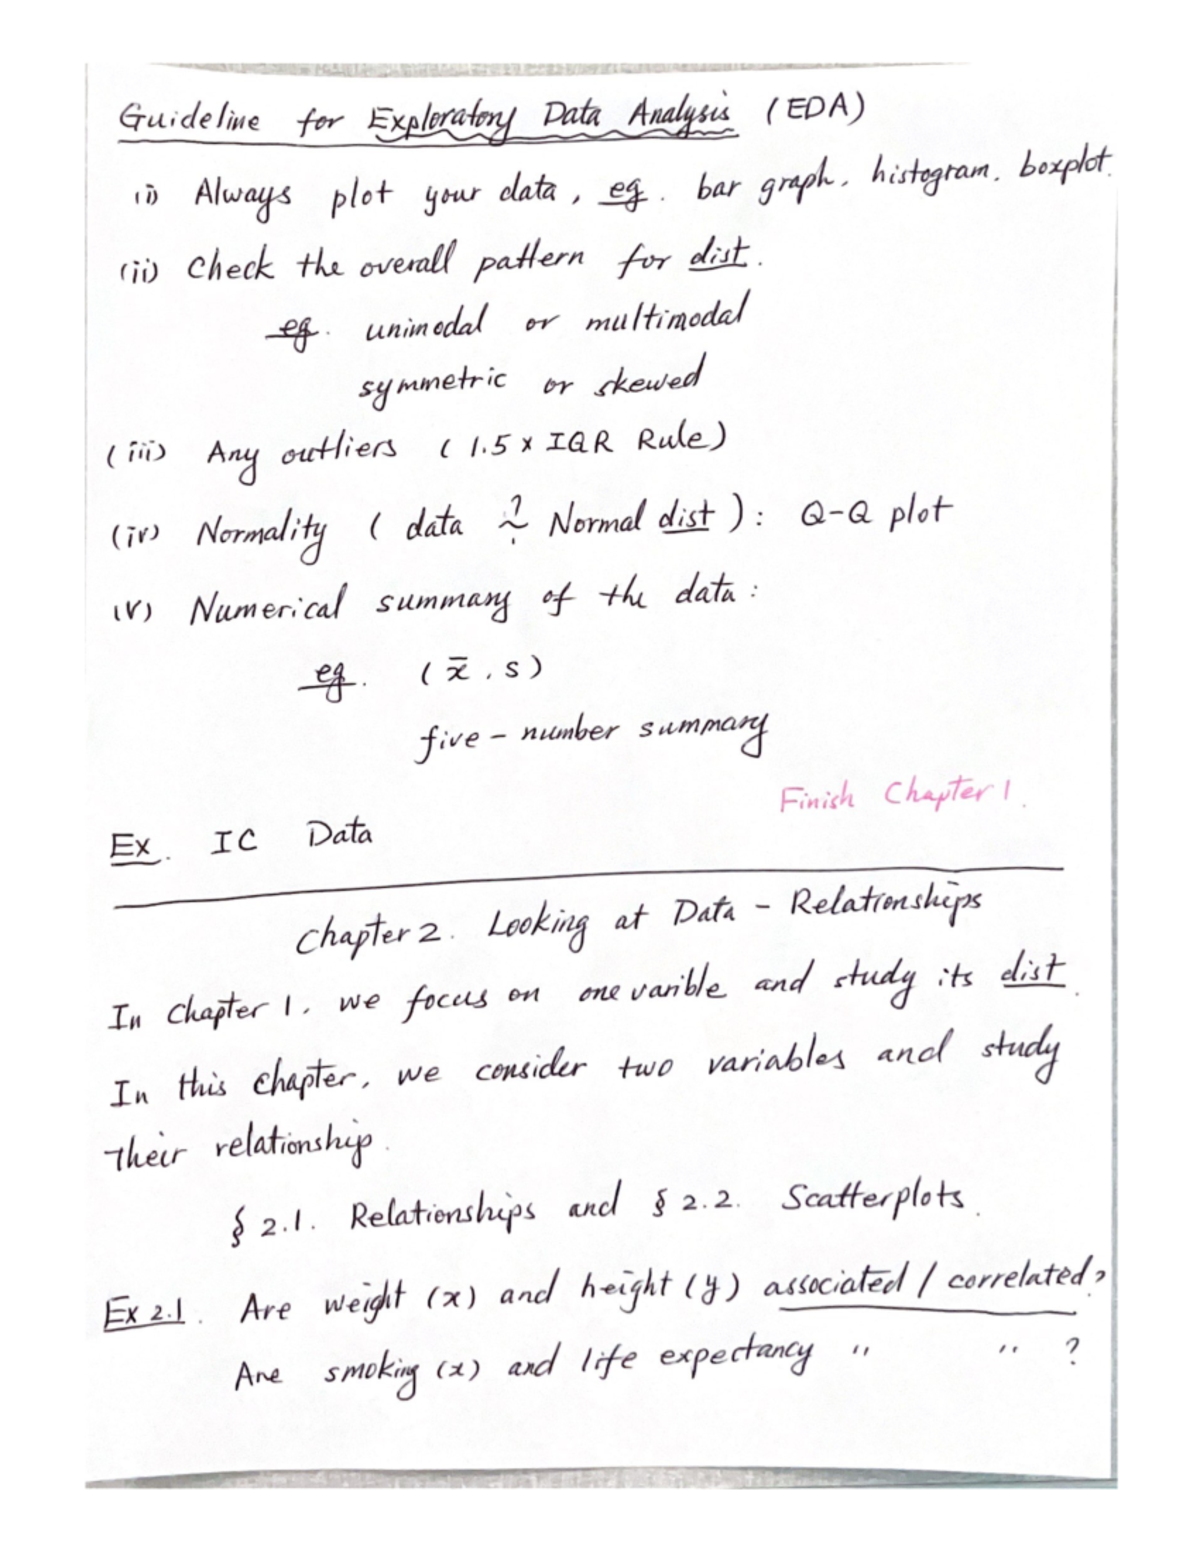 Guideline for Exploratory Data Analysis (EDA)
(i) Always plot your data, eg. bar graph, histogram, boxplot.
(ii) Check the overall pattern for dist.
eg. unimodal or multimodal
symmetric or skewed
(iii) Any outliers (1.5 x IQR Rule)
(iv) Normality (data ?~ Normal dist): Q-Q plot
(v) Numerical summary of the data:
eg. (x̄, s)
five-number summary
Finish Chapter 1.
Ex. IC Data
Chapter 2. Looking at Data - Relationships
In Chapter 1, we focus on one varible and study its dist.
In this chapter, we consider two variables and study
their relationship.
§ 2.1. Relationships and § 2.2. Scatterplots.
Ex 2.1. Are weight (x) and height (y) associated / correlated?
Are smoking (x) and life expectancy " " ?